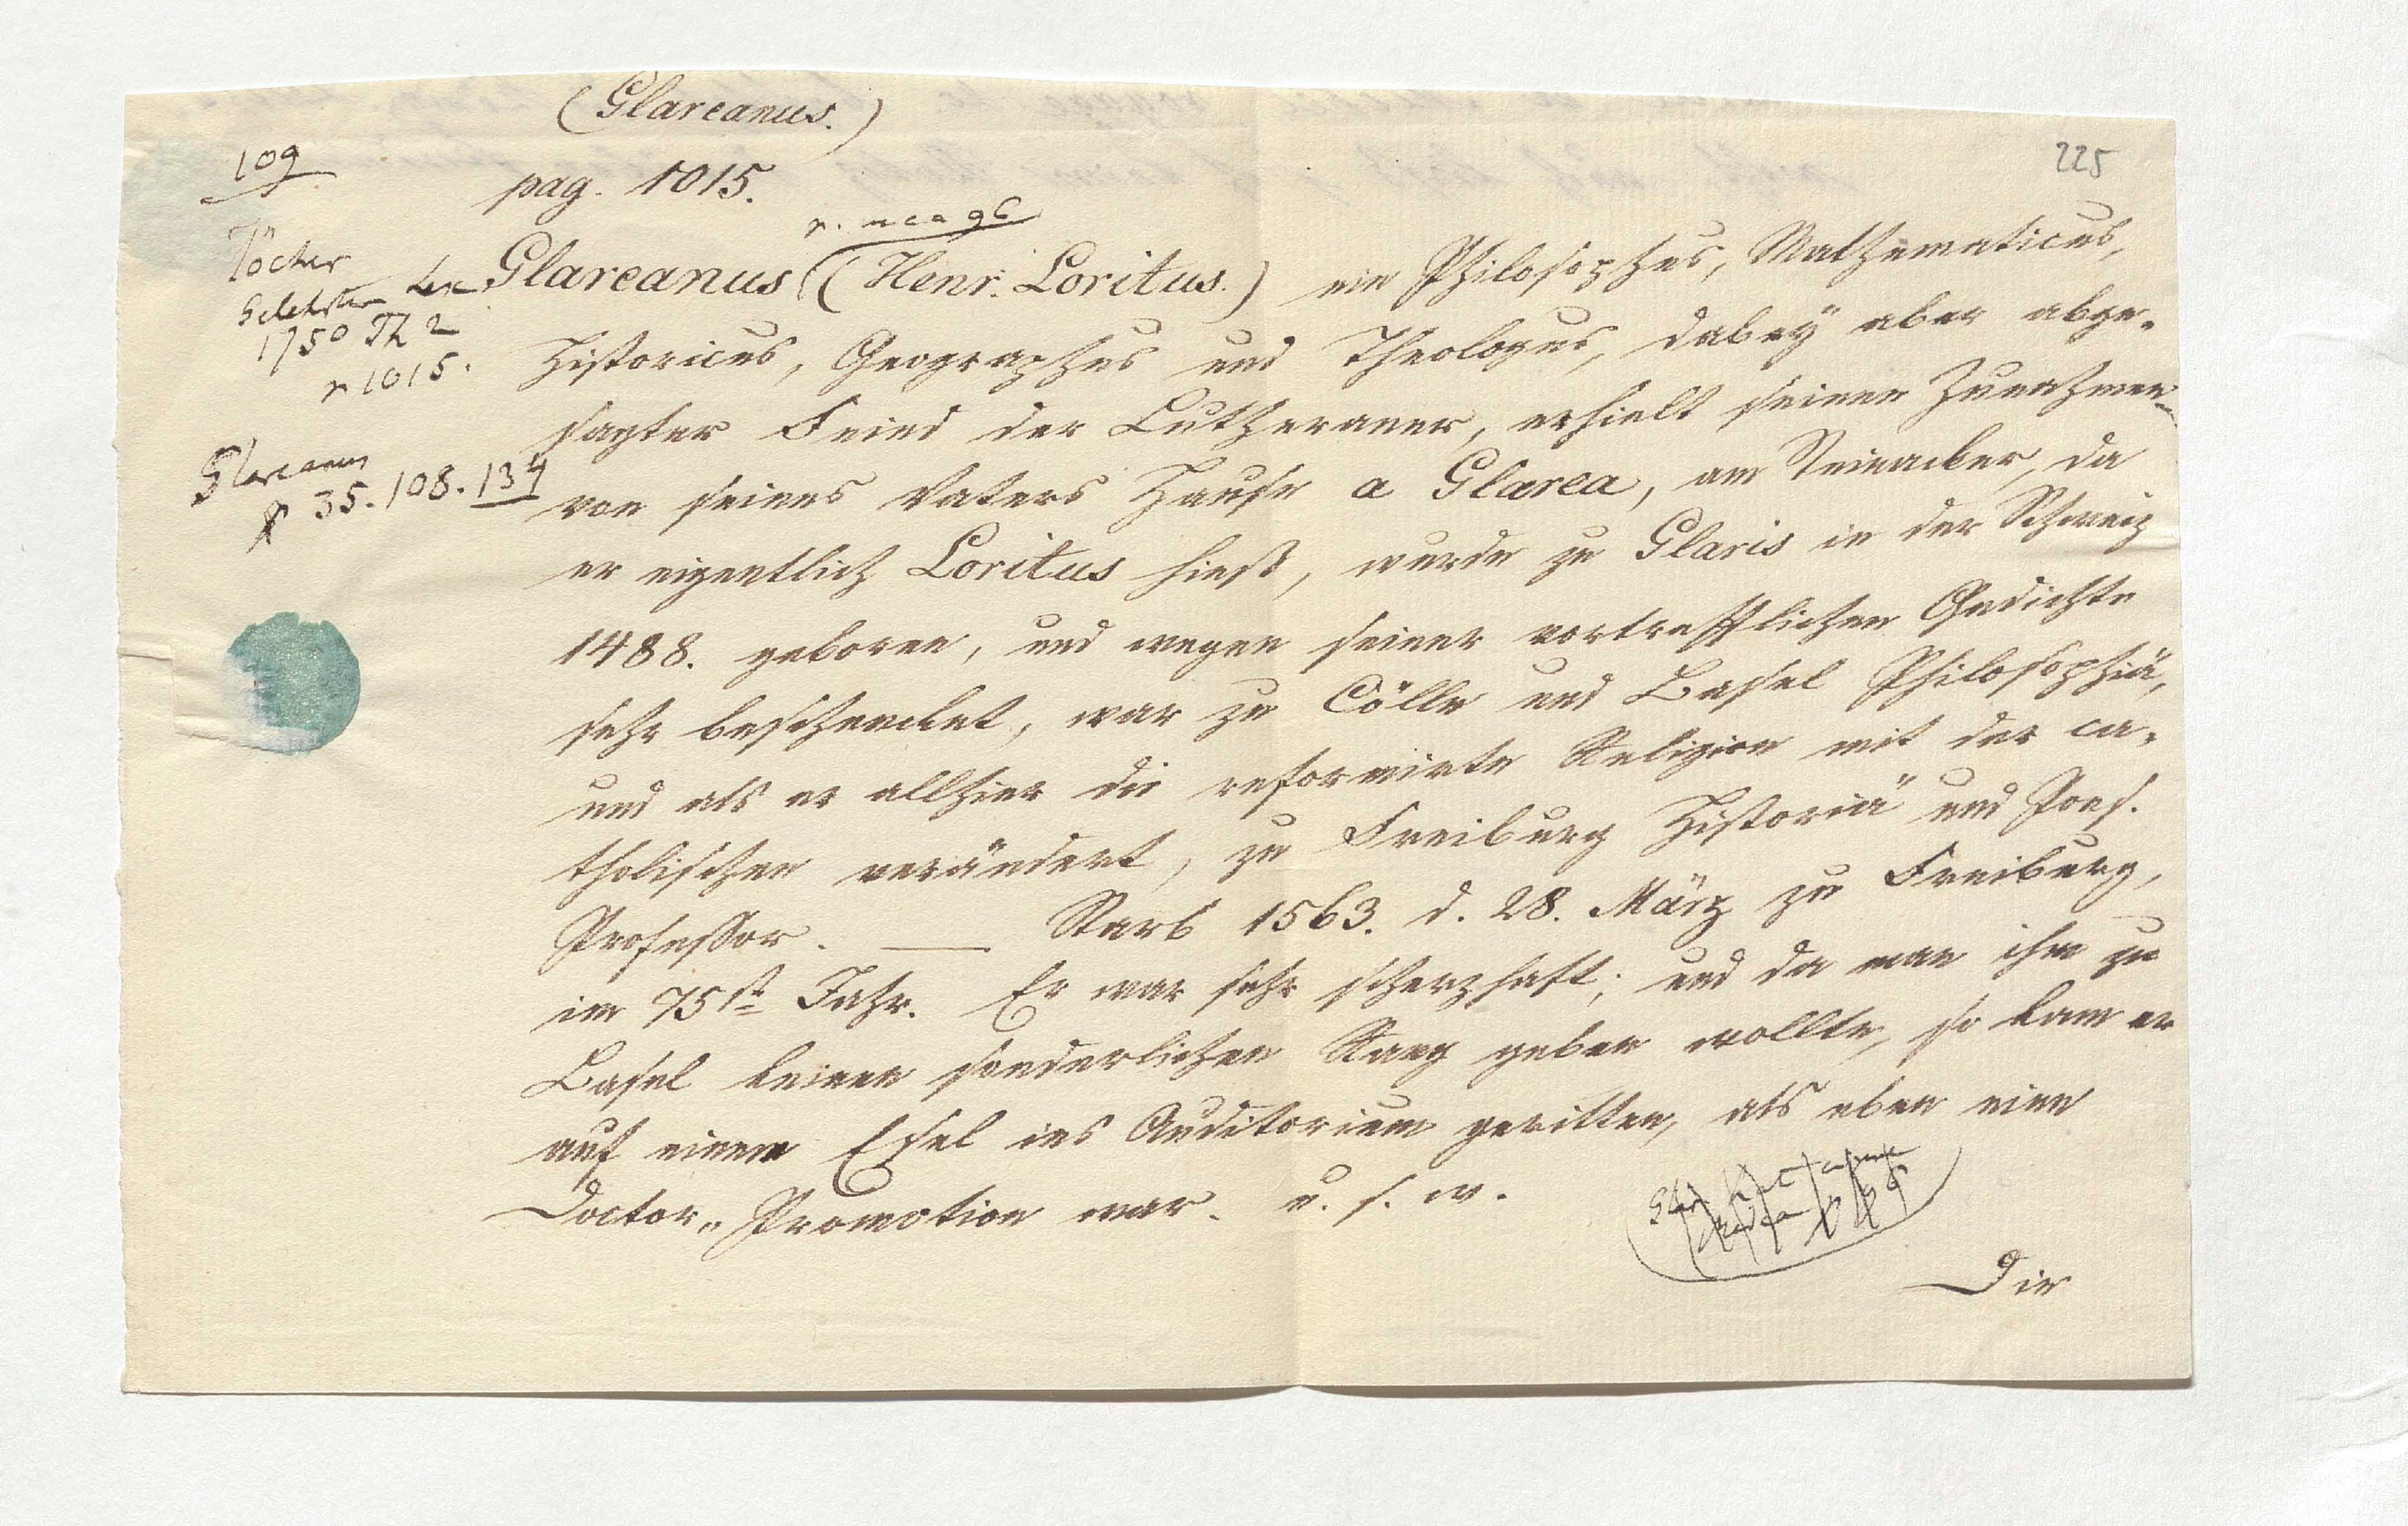 (Glareanus.)
225
109
pag. 1015.
Jöcher
Gelehrten Lex
1750 Th 2
p 1015.
Glareanus
p 35. 108. 134
Glareanus ((Henr. Loritus.) ein Philosophus, Mathematicus,
Historicus, Geographus und Theologus, dabeÿ aber abge-
sagter Feind der Lutheraner, erhielt seinen Zunahmen
von seines Vaters Hause a Glarea, am Steinacker, da
er eigentlich Loritus hieß, wurde zu Glaris in der Schweiz
1488. geboren, und wegen seiner vortrefflichen Gedichte
sehr beschencket, war zu Cölln und Basel Philosophiä,
und als er allhier die reformirte Religion mit der ca-
tholischen verändert, zu Freiburg Historiä und Poes.
Professor. — Starb 1563. d. 28. März zu Freiburg,
im 75st Jahr. Er war sehr scherzhaft; und da man ihm zu
Basel keinen sonderlichen Rang geben wollte, so kam er
auf einem Esel ins Auditorium geritten, als eben eine
Doctor-Promotion war. u. s. w.
Die